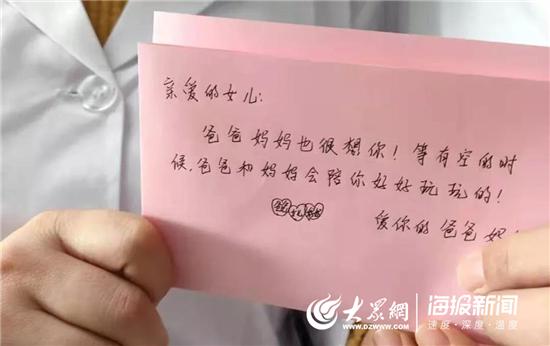 亲爱的女儿:
爸爸妈妈也很想你!等有空的时
候,爸爸和妈妈会陪你好好玩玩的!
爱你的爸爸妈
大众網 海报新闻
WWW.DZWWW.COM 速度·深度·温度